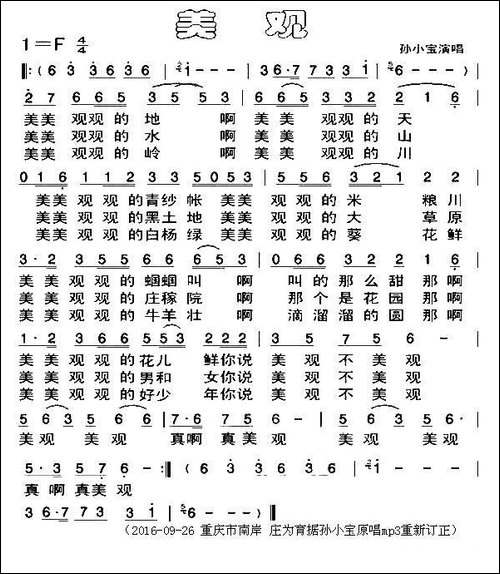 美 观
1=F 4/4 孙小宝演唱
‖:( 6 3 3636 | i - - - | 36·77331 | 6 - - - )|
2 7 6 6 5 3 5 5 3 | 6 6 5 3 3 2 2 1 6 |
美美 观观 的 地 啊 美 美 观观 的 天
美美 观观 的 水 啊 美 美 观观 的 山
美美 观观 的 岭 啊 美 美 观观 的 川
0 1 6 1 1 2 3 3 5 0 5 3 | 5 5 6 3 2 1 2 2 |
美美 观 观 的青纱 帐 美美 观 观 的 米 粮川
美美 观 观 的黑土 地 美美 观 观 的 大 草原
美美 观 观 的白杨 绿 美美 观 观 的 葵 花鲜
3·2 3 5 6 6 6 5 3 | 0 6 6 3 2 2 1 6 |
美 美 观 观 的 蝈蝈 叫 啊 叫 的 那 么 甜 那 啊
美 美 观 观 的 庄稼 院 啊 那 个 是 花 园 那 啊
美 美 观 观 的 牛羊 壮 啊 滴 溜溜 的 圆 那 啊
1·2 3 6 5 5 3 2 2 2 | 3 7 5 6 - |
美 美 观 观 的 花儿 鲜你说 美 观 不 美 观
美 美 观 观 的 男和 女你说 美 观 不 美 观
美 美 观 观 的 好少 年你说 美 观 不 美 观
5 6 3 5 6 6 | 7·6 7 5 6 | 5 6 3 5 3 5 6· |
美 观 美 观 真啊 真美 观 美 观 美 观
5·3 5 7 6 - :‖( 6 3 3636 | i - - - |
真 啊 真美 观
36·77331 | 6 - - - )‖
(2016-09-26 重庆市南岸 庄为育据孙小宝原唱mp3重新订正)